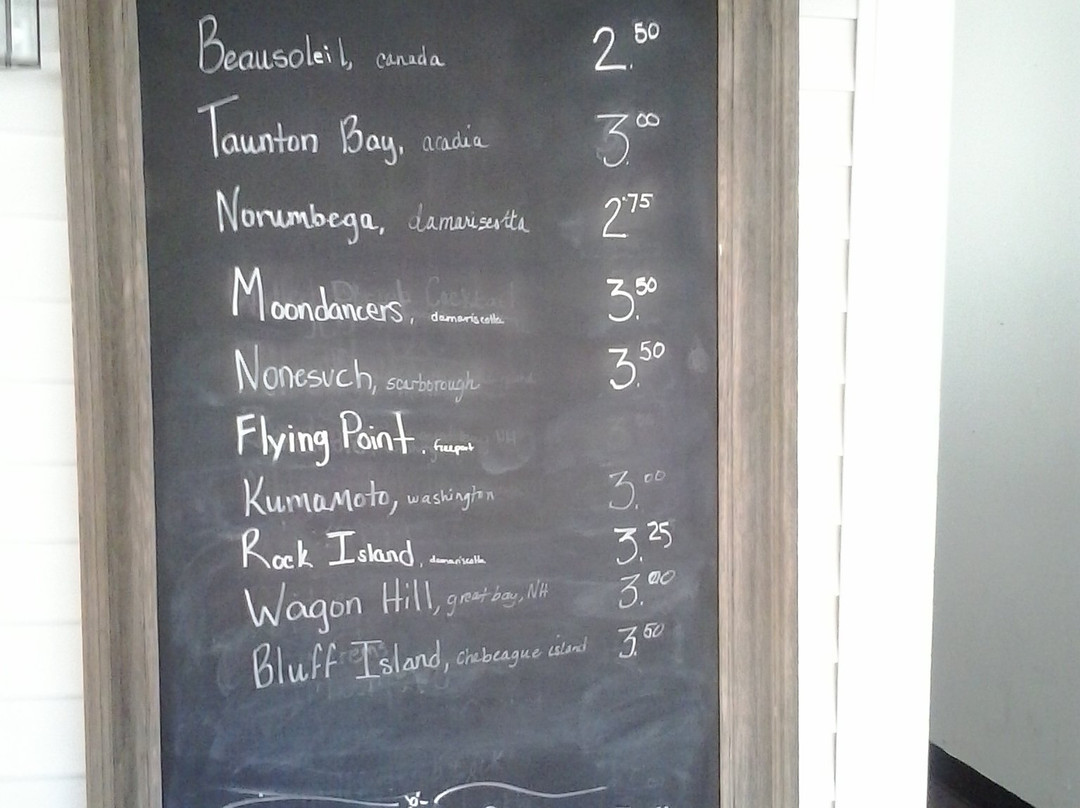 Beausoleil, canada 2.50
Taunton Bay, acadia 3.00
Norumbega, damariscotta 2.75
Moondancers, damariscotta 3.50
Nonesuch, scarborough 3.50
Flying Point, freeport
Kumamoto, washington 3.00
Rock Island, damariscotta 3.25
Wagon Hill, great bay, NH 3.00
Bluff Island, chebeague island 3.50